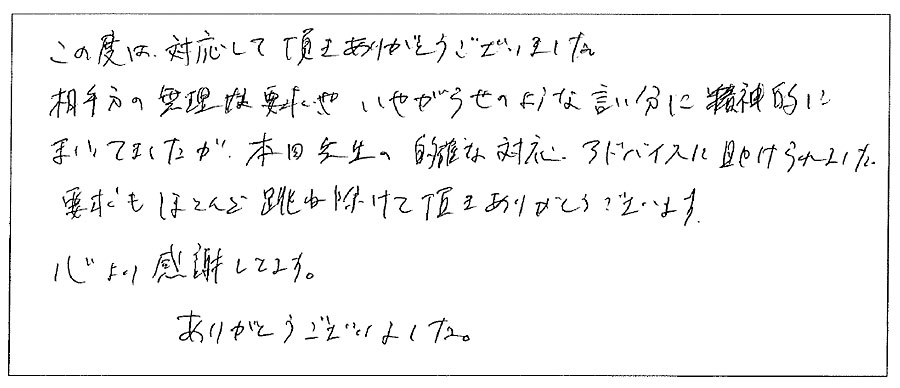 この度は、対応して頂きありがとうございました
相手方の無理な要求や いやがらせのような言い分に精神的に
まいってましたが、本田先生の的確な対応、アドバイスに助けられました。
要求もほとんど跳ね除けて頂きありがとうございます。
心より感謝してます。
ありがとうございました。